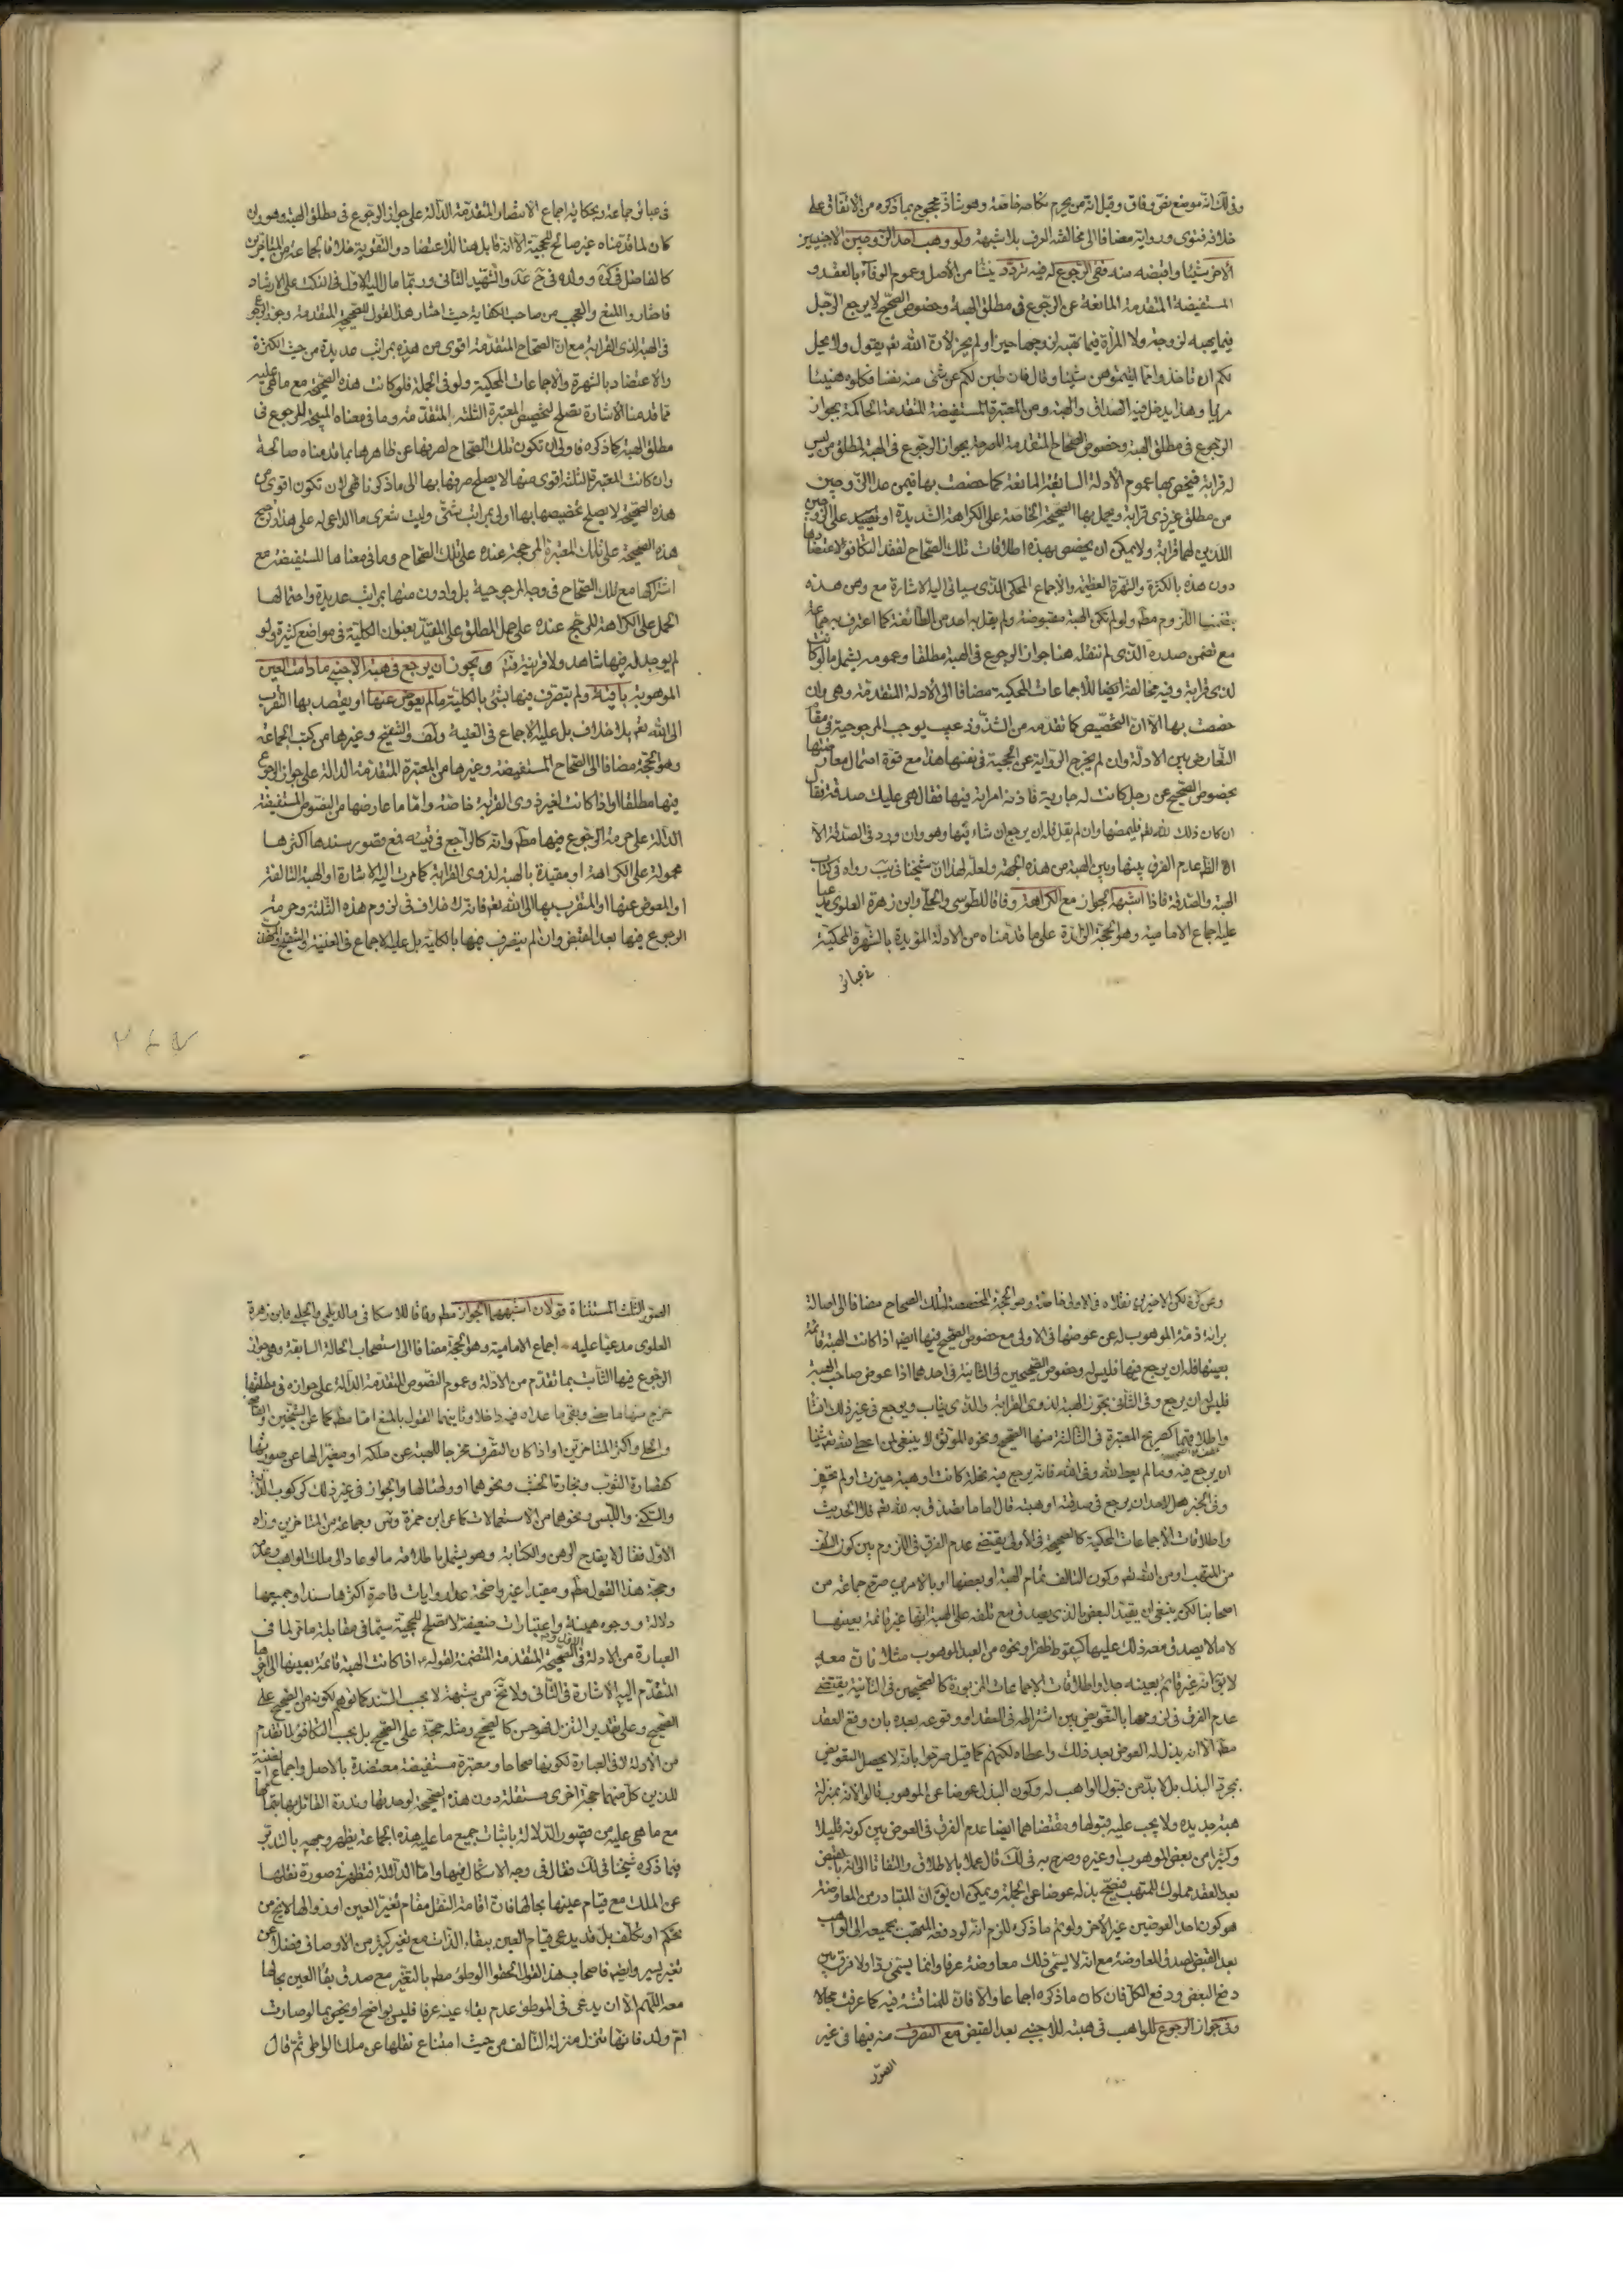 وفي لك انه موضع نفي وفاق وقيل انه من يحرم نكاحه خاصة وهو شاذ محجوج بما ذكره من الاتفاق على
خلافه فتوى ورواية مضافا الى مخالفته العرف بلا شبهة ولو وهب احد الزوجين الاجنبيين
الاخر شيئا واقبضه منه ففي الرجوع له فيه تردد ينشا من الاصل وعموم الوفاء بالعقد و
المستفيضة المتقدمة المانعة عن الرجوع في مطلق الهبة وخصوص الصحيح لا يرجع الرجل
فيما يهبه لزوجته ولا المراة فيما تهبه لزوجها حيز او لم يحز لان الله تعم يقول ولا يحل
لكم ان تاخذوا مما اتيتموهن شيئا وقال فان طبن لكم عن شئ منه نفسا فكلوه هنيئا
مريا وهذا يدخل فيه الصداق والهبة ومن المعتبرة المستفيضة المتقدمة الحاكمة بجواز
الرجوع في مطلق الهبة وخصوص الصحاح المتقدمة المصرحة بجواز الرجوع في الهبة لمطلق من ليس
له قرابة فيخص بها عموم الادلة السابقة المانعة كما خصصت بها فيمن عدا الزوجين
من مطلق غير ذي قرابة ويحمل بها الصحيحة الخاصة على الكراهة الشديدة او تقييد على الزوجين
اللذين لهما قرابة ولا يمكن ان يخصص بهذه اطلاقات تلك الصحاح لفقد التكافؤ لاعتضادها
دون هذه بالكثرة والشهرة العظيمة والاجماع المحكي الذي سياتي اليه الاشارة مع وهن هذه
بتضمنها اللزوم مطم ولو لم تكن الهبة مقبوضة ولم يقل به احد من الطائفة كما اعترف به جماعة
مع تضمن صدره الذي لم ننقله هنا جواز الرجوع في الهبة مطلقا وعمومه يشمل ما لو كانت
لذي قرابة وفيه مخالفة ايضا للاجماعات المحكية مضافا الى الادلة المتقدمة وهي وان
خصت بها الا ان التخصيص كما تقدمه من الشذوذ عيب يوجب المرجوحية في مقام
التعارض بين الادلة وان لم يخرج الرواية عن الحجية في نفسها هذا مع قوة احتمال معارضتها
بخصوص الصحيح عن رجل كانت له جارية فاذته امراته فيها فقال هي عليك صدقة فقال
ان كان ذلك لله تعم فليمضها وان لم يقل فله ان يرجع ان شاء فيها وهو وان ورد في الصدقة الا
ان الظ عدم الفرق بينها وبين الهبة من هذه الجهة ولعله لهذا ان شيخنا في يب رواه في كتاب
الهبة والصدقة فاذا اشبهه الجواز مع الكراهة وفاقا للطوسي والحلي وابن زهرة العلوي مدعيا
عليه اجماع الامامية وهو الحجة الزائدة على ما قدمناه من الادلة المؤيدة بالشهرة المحكية
في عبائر
في عبائر جماعة وبحكاية اجماع الانتصار المتقدمة الدالة على جواز الرجوع في مطلق الهبة وهو وان
كان لما قدمناه غير صالح للحجية الا انه قابل هنا للاعتضاد والتقوية خلافا لجماعة من المتاخرين
كالفاضل في كره وولده في ح عد والشهيد الثاني وربما مال اليه الاول في النكت على الارشاد
فاختاروا المنع والعجب من صاحب الكفاية حيث اختار هذا القول للصحيح المتقدمة وجوز الرجوع
في الهبة لذي القرابة مع ان الصحاح المتقدمة اقوى من هذه بمراتب عديدة من حيث الكثرة
والاعتضاد بالشهرة والاجماعات المحكية ولو في الجملة فلو كانت هذه الصحيحة مع ما هي عليه
مما قدمنا الاشارة تصلح لتخصيص المعتبرة الثلثة المتقدمة وما في معناه المبيحة للرجوع في
مطلق الهبة كما ذكره فاولى ان تكون تلك الصحاح لصرفها عن ظاهرها بما قدمناه صالحة
وان كانت المعتبرة الثلثة اقوى منها لا يصلح صرفها بها الى ما ذكرنا فهي لان تكون اقوى من
هذه الصحيحة لا يصلح تخصيصها بها اولى بمراتب شتى وليت شعري ما الداعي له على هذا وترجيح
هذه الصحيحة على تلك المعتبرة المرجحة عنده على تلك الصحاح وما في معناها المستفيضة مع
اشتراكها مع تلك الصحاح في وجه المرجوحية بل وادون منها بمراتب عديدة واحتمالها
الحمل على الكراهة المرجح عنده على حمل المطلق على المقيد بعنوان الكلية في مواضع كثيرة ولو
لم يوجد له فيها شاهد ولا قرينة فتم ويجوز ان يرجع في هبة الاجنبي ما دامت العين
الموهوبة باقية ولم يتصرف فيها بشئ بالكلية ما لم يعوض عنها او يقصد بها التقرب
الى الله تعم بلا خلاف بل عليه الاجماع في الغنية ولف والتنقيح وغيرها من كتب الجماعة
وهو الحجة مضافا الى الصحاح المستفيضة وغيرها من المعتبرة المتقدمة الدالة على جواز الرجوع
فيها مطلقا او اذا كانت لغير ذوي القرابة خاصة واما ما عارضها من النصوص المستفيضة
الدالة على حرمة الرجوع فيها مطم وانه كالراجع في قيئه فمع قصور سندها اكثرها
محمولة على الكراهة او مقيدة بالهبة لذوي القرابة كما مرت اليه الاشارة او الهبة التالفة
او المعوض عنها او المتقرب بها الى الله تعم فانه لا خلاف في لزوم هذه الثلثة وحرمة
الرجوع فيها بعد القبض وان لم يتصرف فيها بالكلية بل عليه الاجماع في الغنية والتنقيح
وعن كره لكن الاخيرين نقلاه في الاولى خاصة وهو الحجة المخصصة لتلك الصحاح مضافا الى اصالة
براءة ذمة الموهوب له عن عوضها في الاولى مع خصوص الصحيح فيها ايضم اذا كانت الهبة قائمة
بعينها فله ان يرجع فيها فليس له وخصوص الصحيحين في الثانية في احدهما اذا عوض صاحب الهبة
فليس له ان يرجع وفي الثاني تجوز الهبة لذوي القرابة والذي يثاب ويرجع في غير ذلك انشا
واطلاقهما كصريح المعتبرة في الثالثة منها الصحيح ونحوه الموثق لا ينبغي لمن اعطى لله تعم شيئا
ان يرجع فيه وما لم يعط لله وفي الله فانه يرجع فيه نحلة كانت او هبة حيزت او لم تحز
وفي الخبر هل لاحد ان يرجع في صدقته او هبته قال اما ما تصدق به لله تعم فلا الحديث
واطلاقات الاجماعات المحكية كالصحيحة في الاولى يقتضي عدم الفرق في اللزوم بين كون التلف
من المتهب او من الله تعم وكون التالف تمام الهبة او بعضها وبالامرين صرح جماعة من
اصحابنا لكن ينبغي ان يقيد البعض الذي يصدق مع تلفه على الهبة انها غير قائمة بعينها
لا ما لا يصدق معه ذلك عليها كسقوط ظفر ونحوه من العبد الموهوب مثلا فان معه
لا يق انه غير قائم بعينه جدا واطلاقات الاجماعات المزبورة كالصحيحين في الثانية يقتضي
عدم الفرق في لزومها بالتعويض بين اشتراطه في العقد او وقوعه بعده بان وقع العقد
مطم الا انه بذل له العوض بعد ذلك واعطاه لكنهم كما قيل صرحوا بانه لا يحصل التعويض
بمجرد البذل بل لا بد من قبول الواهب له وكون البذل عوضا عن الموهوب قالوا لانه بمنزلة
هبة جديدة ولا يجب عليه قبولها ومقتضاهما ايضا عدم الفرق في العوض بين كونه قليلا
وكثيرا من بعض الموهوب او غيره وصرح به في لك قال عملا بالاطلاق والتفاتا الى انه بالقبض
بعد العقد مملوك للمتهب فيصح بذله عوضا عن الجملة ويمكن ان يق ان المتبادر من المعاوضة
هو كون احد العوضين غير الاخر ولو تم ما ذكره للزم انه لو دفعه المتهب بجميعه الى الواهب
بعد القبض لصدق المعاوضة مع انه لا يسمى ذلك معاوضة عرفا وانما يسمى ردا ولا فرق بين
دفع البعض ودفع الكل فان كان ما ذكره اجماعا والا فان للمناقشة فيه كما عرفت مجالا
وفي جواز الرجوع للواهب في هبته للاجنبي بعد القبض مع التصرف منه فيها في غير
الصور
الصور الثلث المستثناة قولان اشبههما الجواز مطم وفاقا للاسكافي والديلمي والحلبي وابن زهرة
العلوي مدعيا عليه اجماع الامامية وهو الحجة مضافا الى استصحاب الحالة السابقة وهي جواز
الرجوع فيها الثابت بما تقدم من الادلة وعموم النصوص المتقدمة الدالة على جوازه في مطلقها
خرج منها ما مضى وبقي ما عداه فيه داخلا وثانيهما القول بالمنع اما مطم كما عن الشيخين والقاضي
والحلي واكثر المتاخرين او اذا كان التصرف مخرجا للهبة عن ملكه او مغيرا لها عن صورتها
كقصارة الثوب ونجارة الخشب ونحوهما او وطئا لها والجواز في غير ذلك كركوب الدابة
والسكنى واللبس ونحوهما من الاستعمالات كما عن ابن حمزة وس وجماعة من المتاخرين وزاد
الاول فقال لا يقدح الرهن والكتابة وهو يشمل باطلاقه ما لو عاد الى ملك الواهب وعدمه
وحجة هذا القول مطم ومقيدا غير واضحة عدا روايات قاصرة اكثرها سندا وجميعها
دلالة ووجوه هينة واعتبارات ضعيفة لا تصلح للحجية سيما في مقابلة ما مر لما في
العبارة من الادلة في الصحيحة المتقدمة المتضمنة لقوله اذا كانت الهبة قائمة بعينها الى اخره
المتقدم اليه الاشارة في الثاني ولا يخ من شبهة لا بحسب السند كما توهم لكونه من الصحيح على
الصحيح وعلى تقدير التنزل فهو حسن كالصحيح ومثله حجة على الصحيح بل بحسب التكافؤ لما تقدم
من الادلة لما في العبارة لكونها صحاحا ومعتبرة مستفيضة معتضدة بالاصل واجماع الغنية
اللذين كل منهما حجة اخرى مستقلة دون هذه الصحيحة لوحدتها وندرة القائل بها بتمامها
مع ما هي عليه من قصور الدلالة باثبات جميع ما عليه هذه الجماعة يظهر وجهه بالتدبر
فيما ذكره شيخنا في لك فقال في وجه الاشكال فيها واما الدلالة فتظهر في صورة نقلها
عن الملك مع قيام عينها بحالها فان اقامة النقل مقام تغير العين او زوالها لا يخ من
تحكم او تكلف بل قد يدعى قيام العين ببقاء الذات مع تغير كثير من الاوصاف فضلا عن
تغير يسير وايضم فاصحاب هذا القول الحقوا الوطئ مطم بالتغير مع صدق بقاء العين بحالها
معه اللهم الا ان يدعى في الموطوئة عدم بقاء عينه عرفا فليس بواضح او يخص بما لو صارت
ام ولد فانها تنزل منزلة التالف من حيث امتناع نقلها عن ملك الواطئ ثم قال